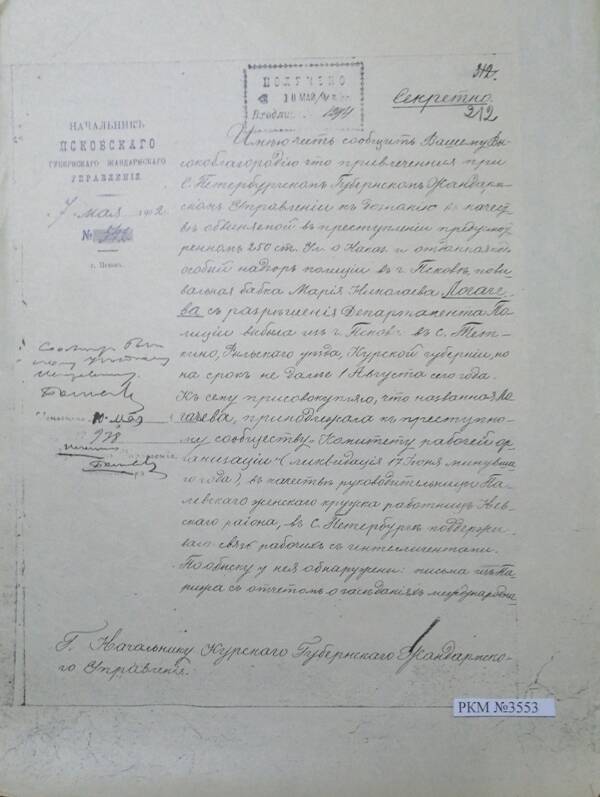 312.
Секретно.
212
ПОЛУЧЕНО
10 МАЙ
Входящ.
НАЧАЛЬНИКЪ
ПСКОВСКАГО
ГУБЕРНСКАГО ЖАНДАРМСКАГО
УПРАВЛЕНІЯ.
7 мая 1902.
№
г. Псковъ.
Имѣю честь сообщить Вашему Вы-
сокоблагородію что привлеченная при
С. Петербургскомъ Губернскомъ Жандарм-
скомъ Управленіи къ дознанію въ качест
вѣ обвиняемой въ преступленіи предусмот
рѣнномъ 250 ст. Ул. о Наказ. и отданная подъ
особый надзоръ полиціи въ г. Псковѣ, пови
вальная бабка Марія Николаева Логаче-
ва съ разрѣшенія Департамента По
лиціи выбыла изъ г. Пскова въ с. Тет-
кино, Рыльскаго уѣзда, Курской губерніи, но
на срокъ не далѣе 1 Августа сего года.
Къ сему присовокупляю, что названная Ло
гачева, принадлежала къ преступно-
му сообществу „Комитету рабочей ор
ганизаціи“ (ликвидація 17 Іюня минувша
го года), въ качествѣ руководительницы Па
левскаго женскаго кружка работницъ Нев-
скаго района, въ С. Петербургѣ поддержи-
вала связь рабочихъ съ интеллигентами.
По обыску у нея обнаружены: письма изъ Па
рижа съ отчетомъ о засѣданіяхъ международна
10 мая
978
Г. Начальнику Курскаго Губернскаго Жандармска-
го Управленія.
РКМ №3553